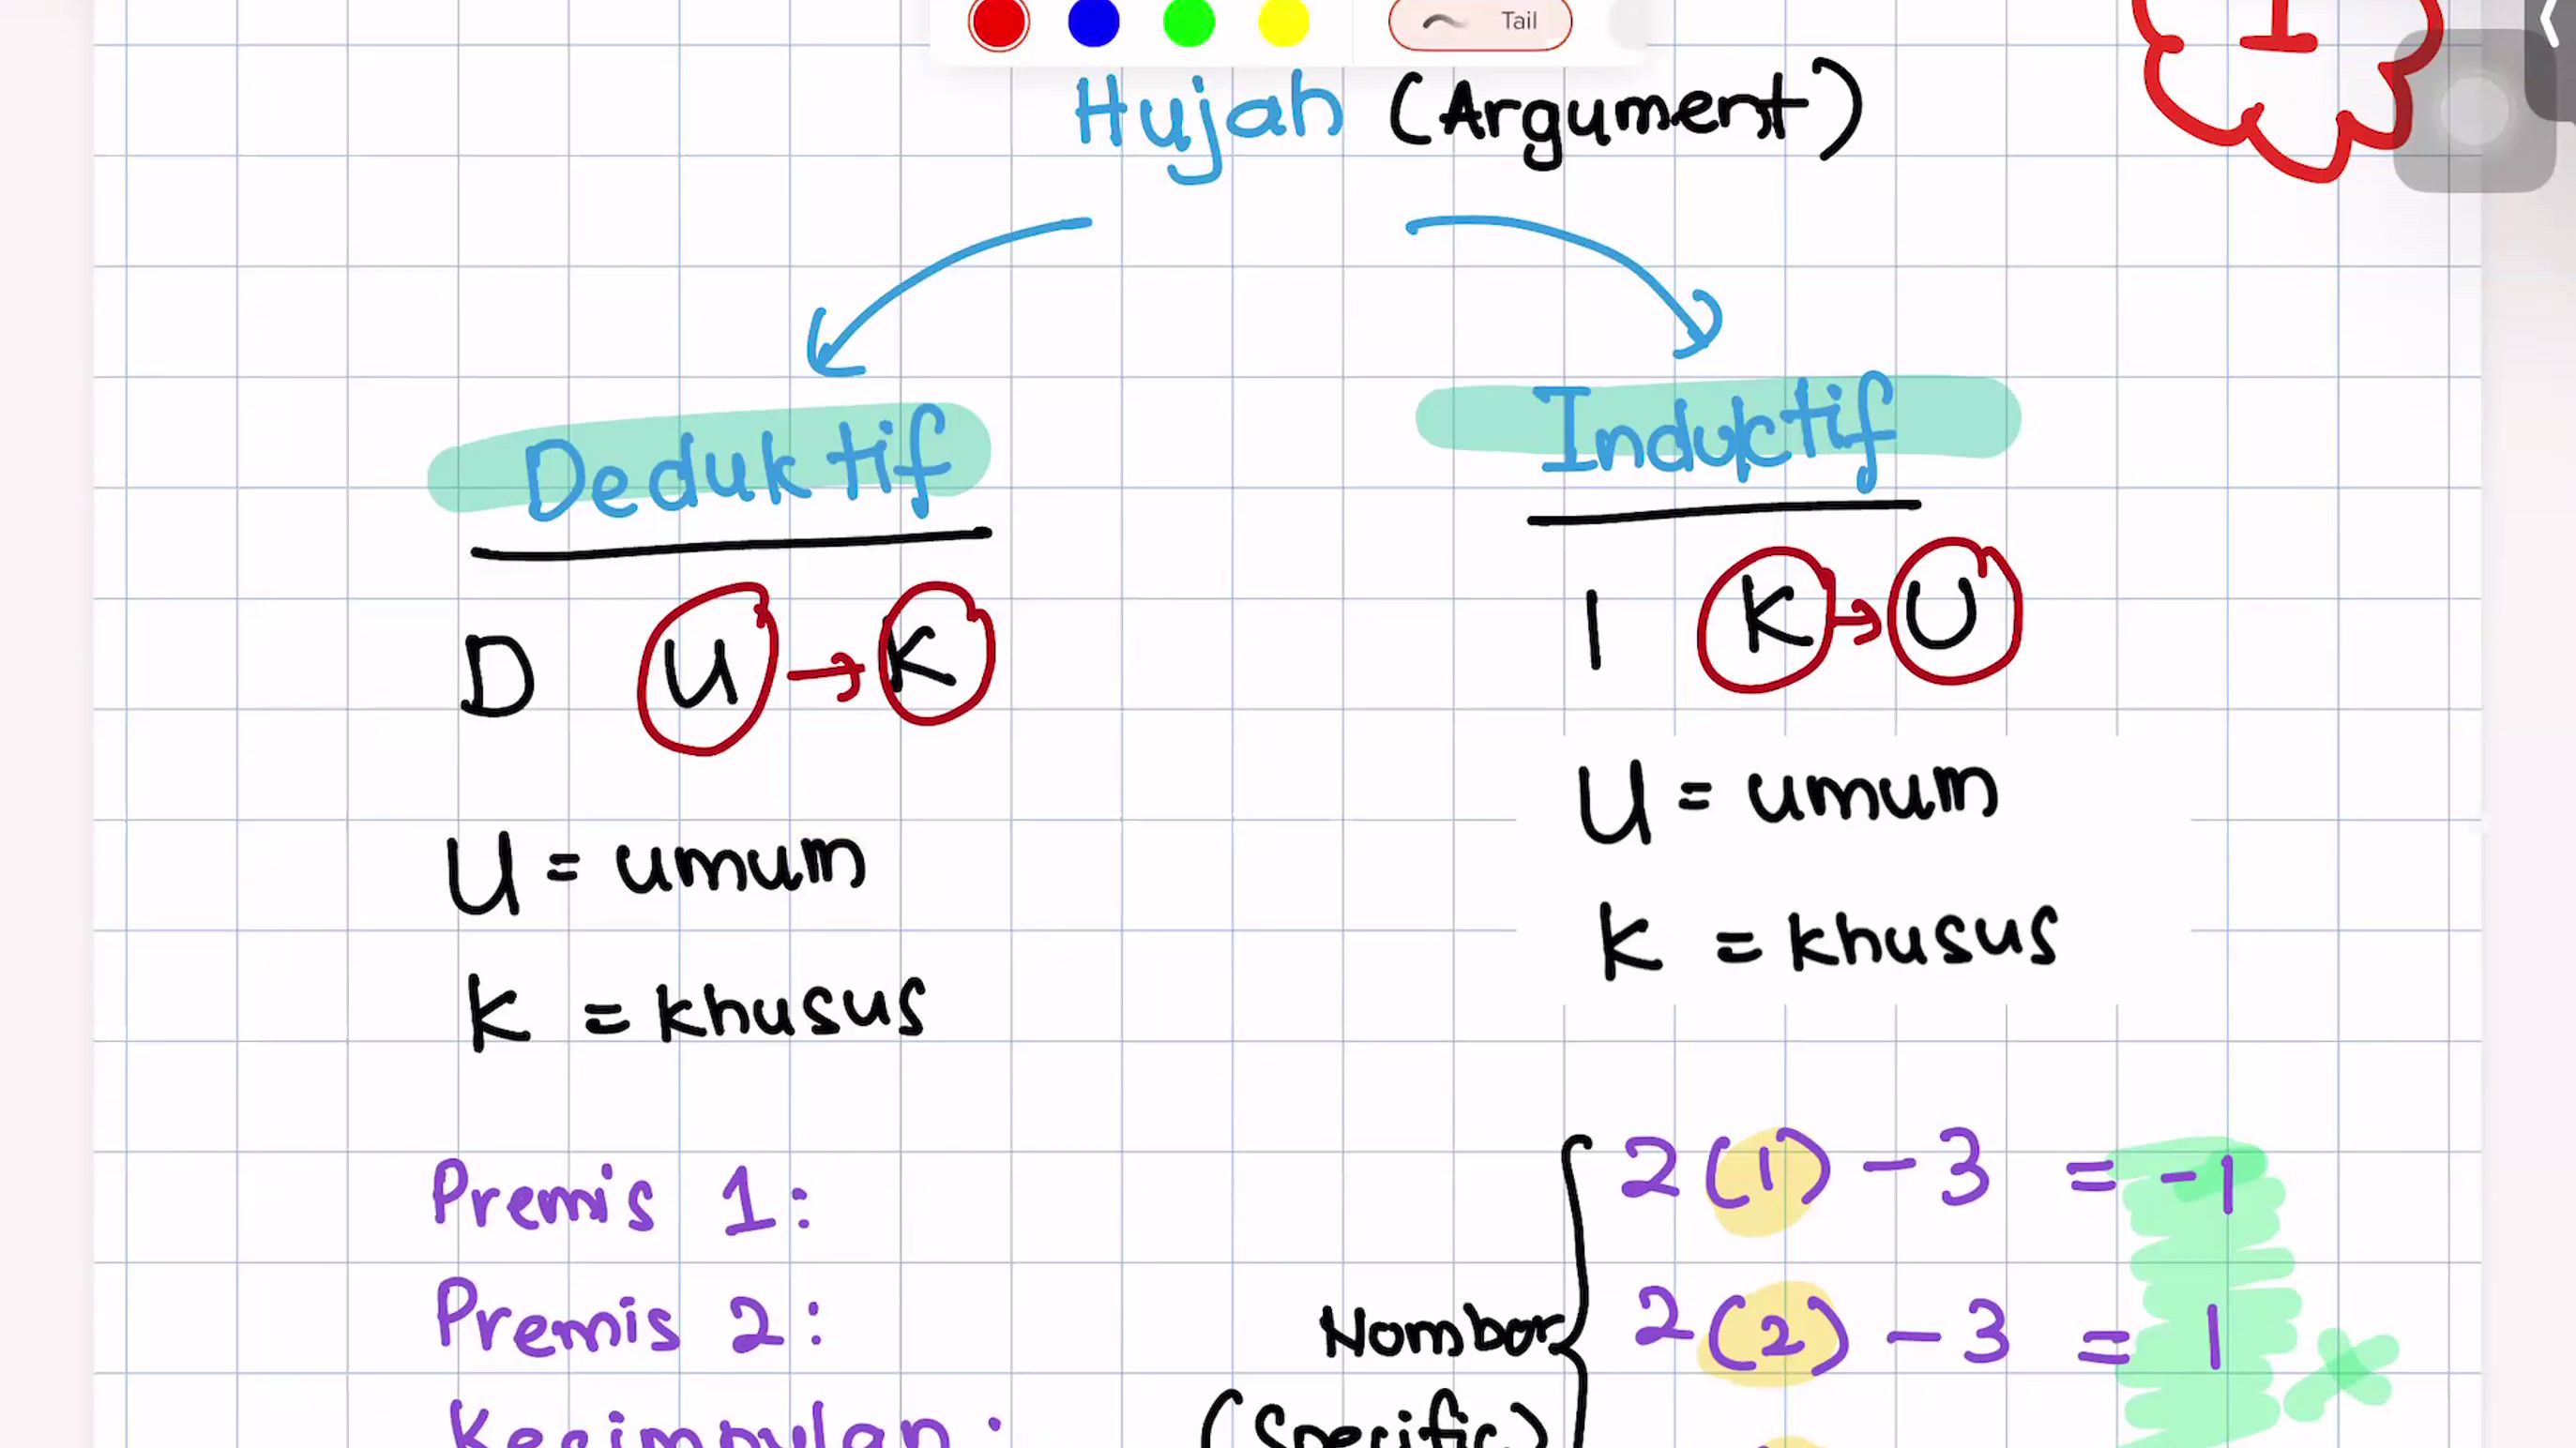 Tail
I
Hujah (Argument)
Deduktif
Induktif
D U → K
I K → U
U = umum
K = khusus
U = umum
K = khusus
Premis 1:
Premis 2:
Kesimpulan:
Nombor
(Specific)
2(1) - 3 = -1
2(2) - 3 = 1